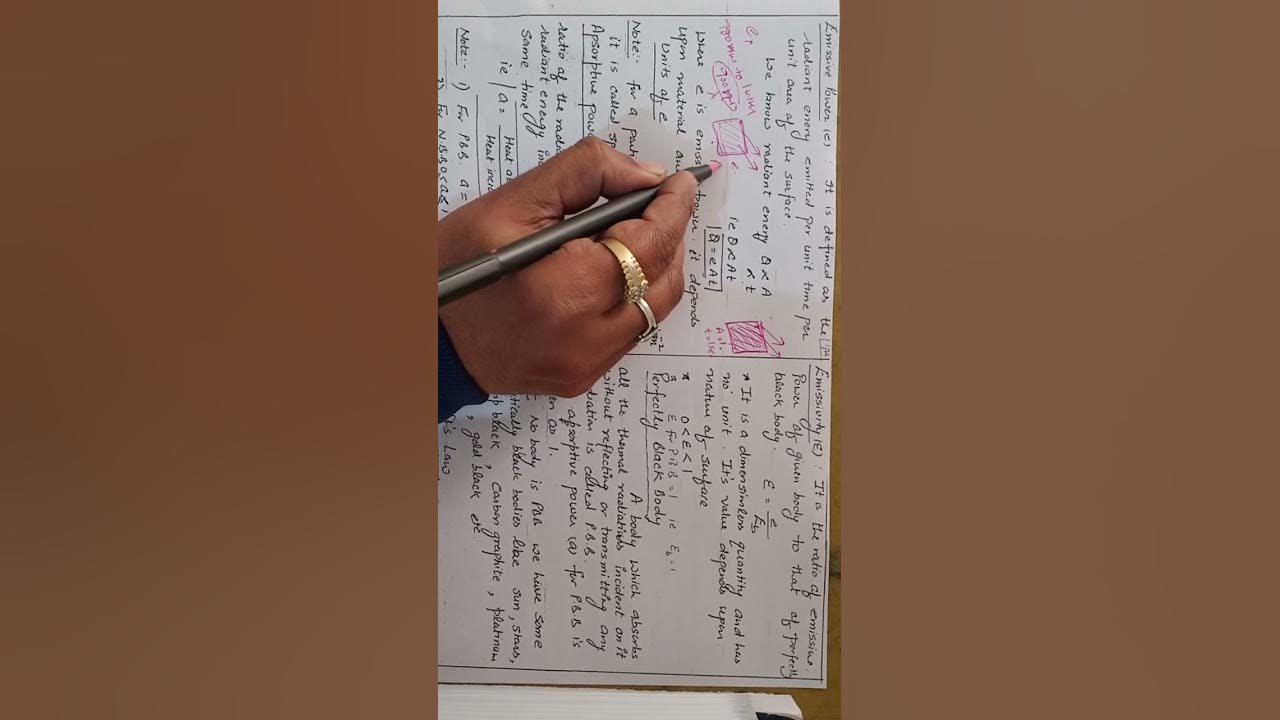 Emissive Power (e) : It is defined as the
radiant enery emitted per unit time per
unit area of the surface.
We know radiant energy Q ∝ A
∝ t
ie Q ∝ At
Q = eAt
700nm to 1mm
900nm
λ
e
where e is emiss power. it depends
upon material
Units of e
m⁻²
Note:- for a
it is called
Apsorptive pow
ratio of the radia
radiant energy in
same time
ie a = Heat
Heat
Note:- 1) For P.B.B. a =
2) For N.B.B 0<a<1
Emissivity (E) : It is the ratio of emissive
Power of given body to that of perfectly
black body.
E = e
Eb
* It is a dimensinless quantity and has
no unit. It's value depends upon
nature of surface
* 0 < E < 1
* E for P.B.B = 1 ie Eb = 1
Perfectly Black Body
A body which absorbs
all the thermal radiations incident on it
without reflecting or transmitting any
diation is called P.B.B.
absorptive power (a) for P.B.B is
1.
No body is PBB we have some
black bodies like sun, stars,
black, carbon graphite, platinum
, gold black etc
's Law